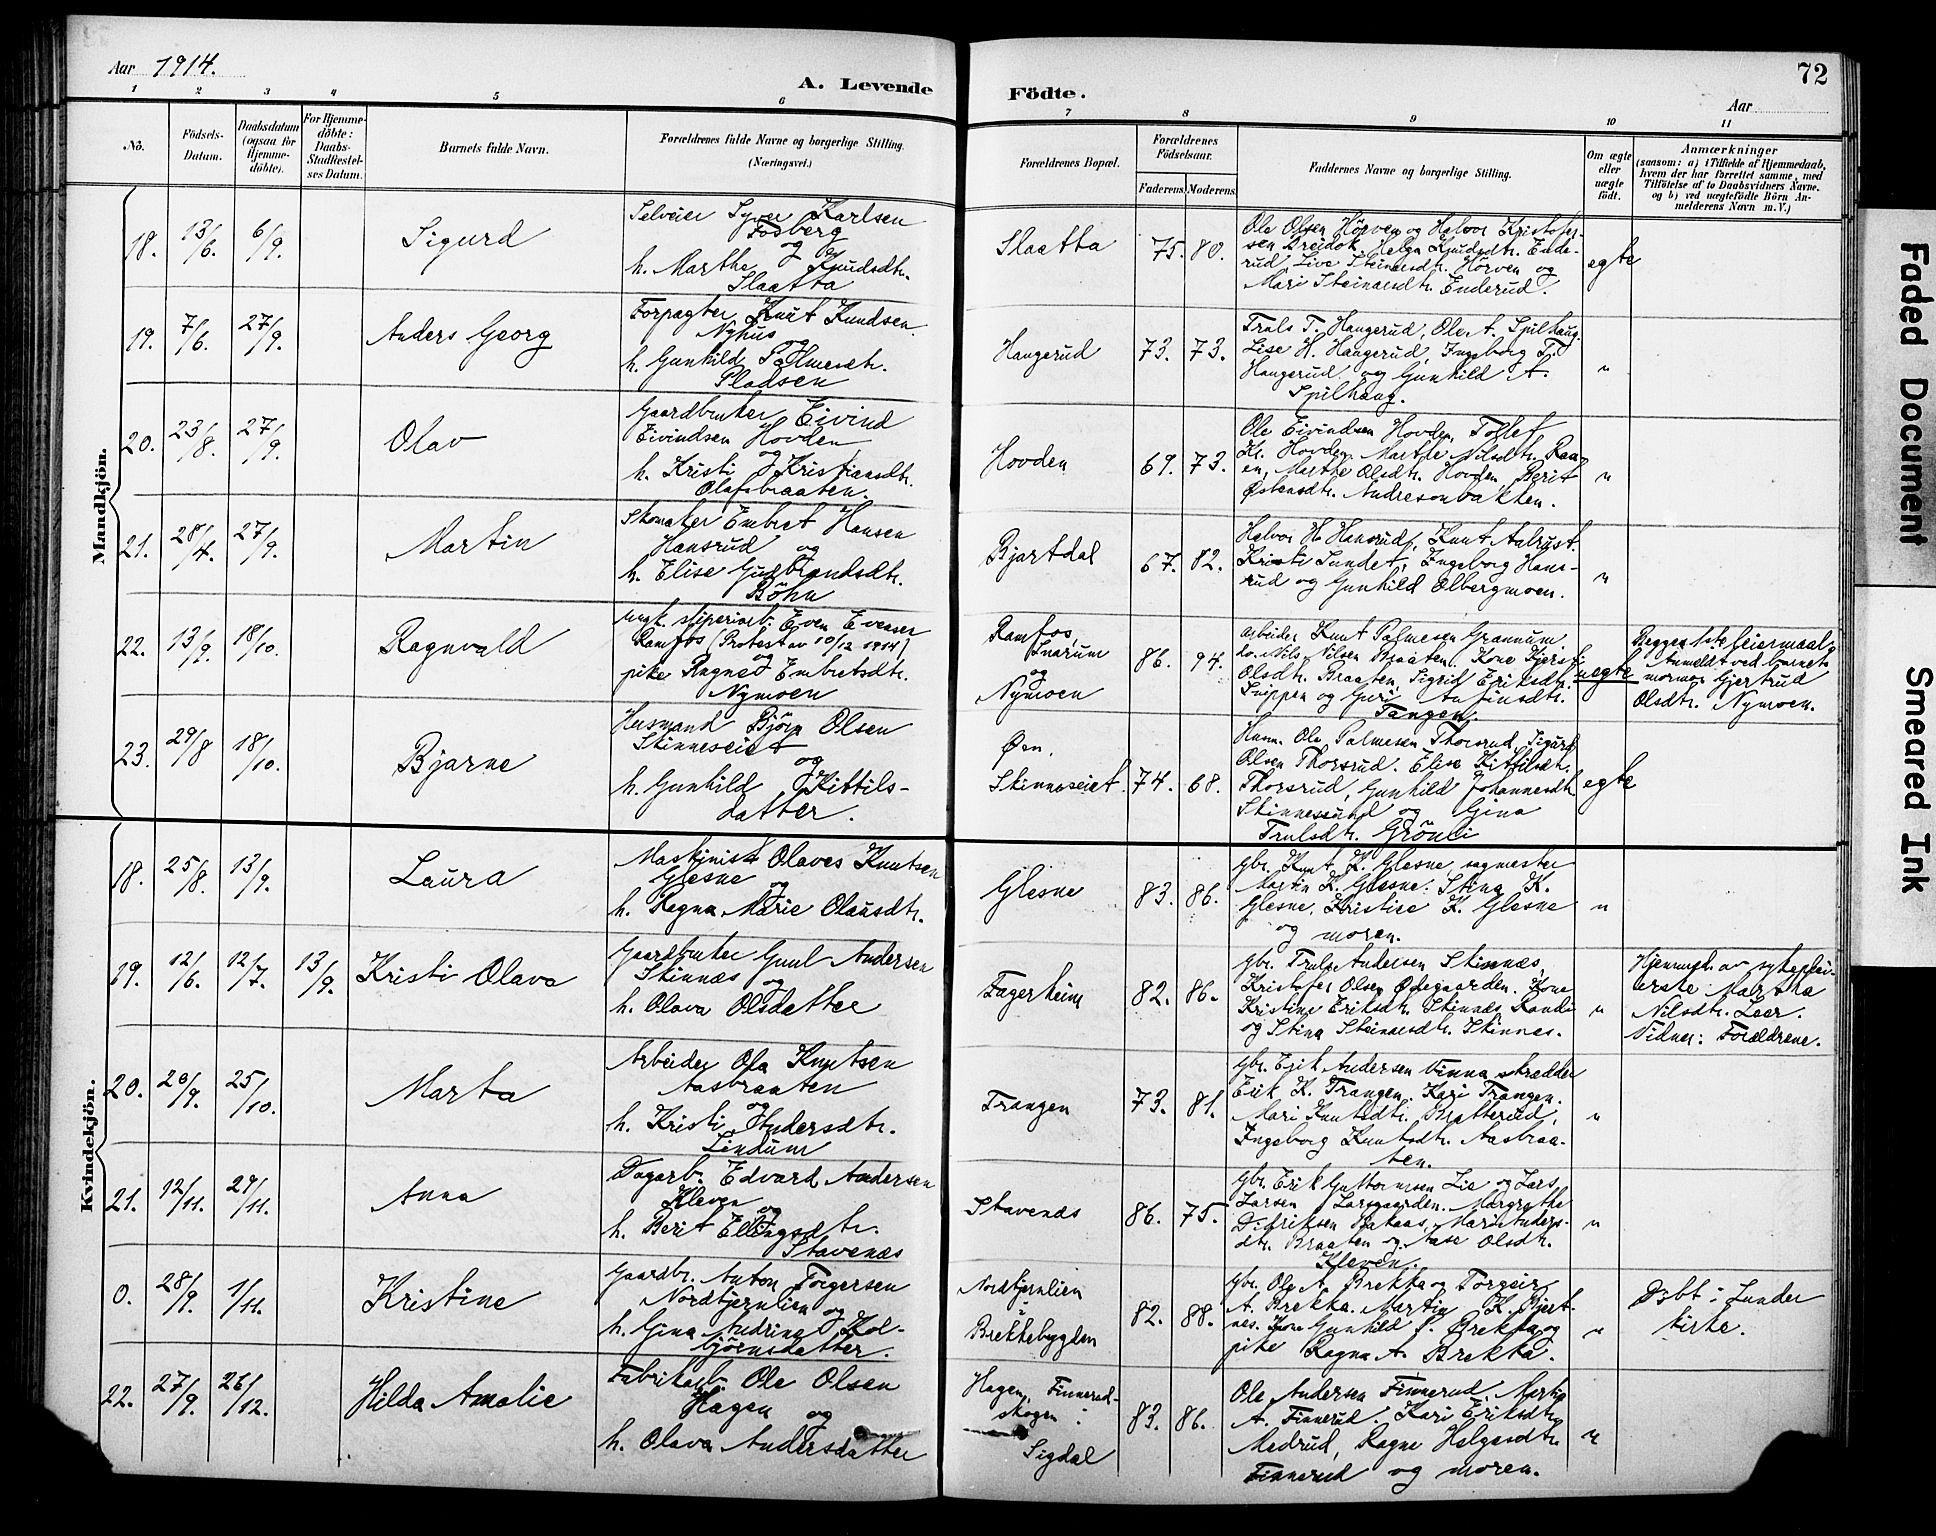 Aar 1914.
A. Levende
Födte.
72
Aar
1 2 3 4 5 6 7 8 9 10 11
No.
Födsels-
Datum.
Daabsdatum
(ogsaa for
Hjemme-
döbte).
For Hjemme-
döbte:
Daabs-
Stadfestel-
ses Datum.
Barnets fulde Navn.
Forældrenes fulde Navne og borgerlige Stilling.
(Næringsvei.)
Forældrenes Bopæl.
Forældrenes
Födselsaar.
Faderens. Moderens.
Faddernes Navne og borgerlige Stilling.
Om ægte
eller
uægte
födt.
Anmærkninger
(saasom: a) i Tilfælde af Hjemmedaab,
hvem der har forrettet samme, med
Tilföielse af to Daabsvidners Navne.
og b) ved uægtefödte Börn An-
melderens Navn m.V.)
Mandkjön.
18. 13/6. 6/9. Sigurd
Selveier Syver Karlsen
Fosberg
og
h. Marthe Knudsdtr.
Slaatta
Slaatta 75. 80.
Ole Olsen Hörven og Halvor Kristofer-
sen Breidok, Helga Knudsdtr. Ende-
rud, Live Steinarsdtr. Hörven og
Mari Steinarsdtr. Enderud.
egte
19. 7/6. 27/9. Anders Georg
Forpagter Knut Knudsen
Nyhus
og
h. Gunhild Palmesdtr.
Pladsen
Haugerud 73. 73.
Truls T. Haugerud, Ole A. Spilhaug.
Lise H. Haugerud, Ingeborg T.
Haugerud og Gunhild A.
Spilhaug.
"
20. 23/8. 27/9. Olav
Gaardbruker Eivind
Eivindsen Hovden
og
h. Kristi Kristiansdtr.
Olafsbraaten.
Hovden 69. 73.
Ole Eivindsen Hovden, Tollef
Kr. Hovden, Marthe Nilsdtr. Raa-
en, Marthe Olsdtr. Hovden, Berit
Östensdtr. Andresonbakken.
"
21. 28/4. 27/9. Martin
Skomaker Embret Hansen
Hansrud og
h. Elise Gulbrandsdtr.
Böhn
Bjartdal 67. 82.
Halvor H. Hansrud, Knut Aalrust.
Kristi Sundet, Ingeborg Hans-
rud og Gunhild Ølbergmoen.
"
22. 13/9. 18/10. Ragnvald
ungk. sliperiarb. Even Evensen
Ramfos (Protest av 10/12 1914)
og
pike Ragne Embretsdtr.
Nymoen
Ramfos,
Snarum
og
Nymoen
86. 94.
arbeider Knut Palmesen Grannum,
do. Nils Nilsen Braaten. Kone Kjersti
Olsdtr. Braaten, Sigrid Eriksdtr.
Snippen og Guri Anfinsdtr.
Tangen.
uegte
Begges 1ste leiermaal.
Anmeldt ved barnets
mormor Gjertrud
Olsdtr. Nymoen.
23. 29/8 18/10. Bjarne
Husmand Björn Olsen
Skinneseiet
og
h. Gunhild Kittils-
datter.
Øen,
Skinneseiet. 74. 68.
Husm. Ole Palmesen Thorsrud, Sigurd
Olsen Thorsrud. Elise Kittilsdt.
Thorsrud, Gunhild Johannesdt
Skinnessund og Gina
Trulsdtr. Grönli
egte
Kvindekjön.
18. 25/8. 13/9. Laura
Maskinist Olaves Knutsen
Glesne
og
h. Regna Marie Olausdtr.
Glesne 83. 86.
Gbr. Knut K. Glesne, sagmester
Martin K. Glesne. Stina K.
Glesne, Kristise K. Glesne
og moren.
"
19. 12/6. 12/7. 13/9. Kristi Olava
Gaardbruker Guul Andersen
Skinnæs og
h. Olava Olsdatter
Fagerheim 82. 86.
Gbr. Truls Andersen Skinnæs,
Kristofer Olsen Ødegaarden. Kone
Kristine Eriksdtr. Skinnæs, Randi
og Stina Steinarsdtr. Skinnes.
"
Hjemmed. av sykeplei-
erske Martha
Nilsdtr. Leer.
Vidner: Forældrene.
20. 20/9. 25/10. Marta
Arbeider Ola Knutsen
Aasbraaten
og
h. Kristi Andersdtr.
Lindum
Trangen 73. 81.
Gbr. Erik Andersen Vinna skrædder
Erik K. Trangen. Kari Trangen.
Mari Knutsdtr. Bratterud,
Ingeborg Knutsdtr. Aasbraa-
ten.
"
21. 12/11. 29/11. Anna
Dagarb. Edvard Andersen
Kleven
og
h. Berit Ellingsdtr.
Stavenæs
Stavenæs 86. 75.
Gbr. Erik Guttormsen Lie og Lars
Larsen Larsgaarden. Margrethe
Didriksen Aataas, Mari Anders-
dtr. Braaten og Aase Olsdtr.
Kleven.
"
0. 28/9. 1/11. Kristine
Gaardbr. Anton Torgersen
Nordbjernlien og
h. Gina Andrine Kol-
björnsdatter.
Nordbjernlien
i
Brekkebygden
82. 88.
Gbr. Ole A. Brekka og Torgeir
A. Brekka. Martin K. Bjert-
nes. Kone Gunhild S. Brekka og
pike Ragna A. Brekka.
"
Döbt i Lunder
kirke.
22. 27/9. 26/12. Hilda Amalie
Fabrikarb. Ole Olsen
Hagen og
h. Olava Andersdatter
Hagen, Finnerud-
skogen i
Sigdal
83. 86.
Ole Andersen Finnerud, Martin
A. Finnerud. Kari Eriksdtr.
Medrud, Ragne Helgesdtr.
Finnerud og moren.
"
Faded Document
Smeared Ink